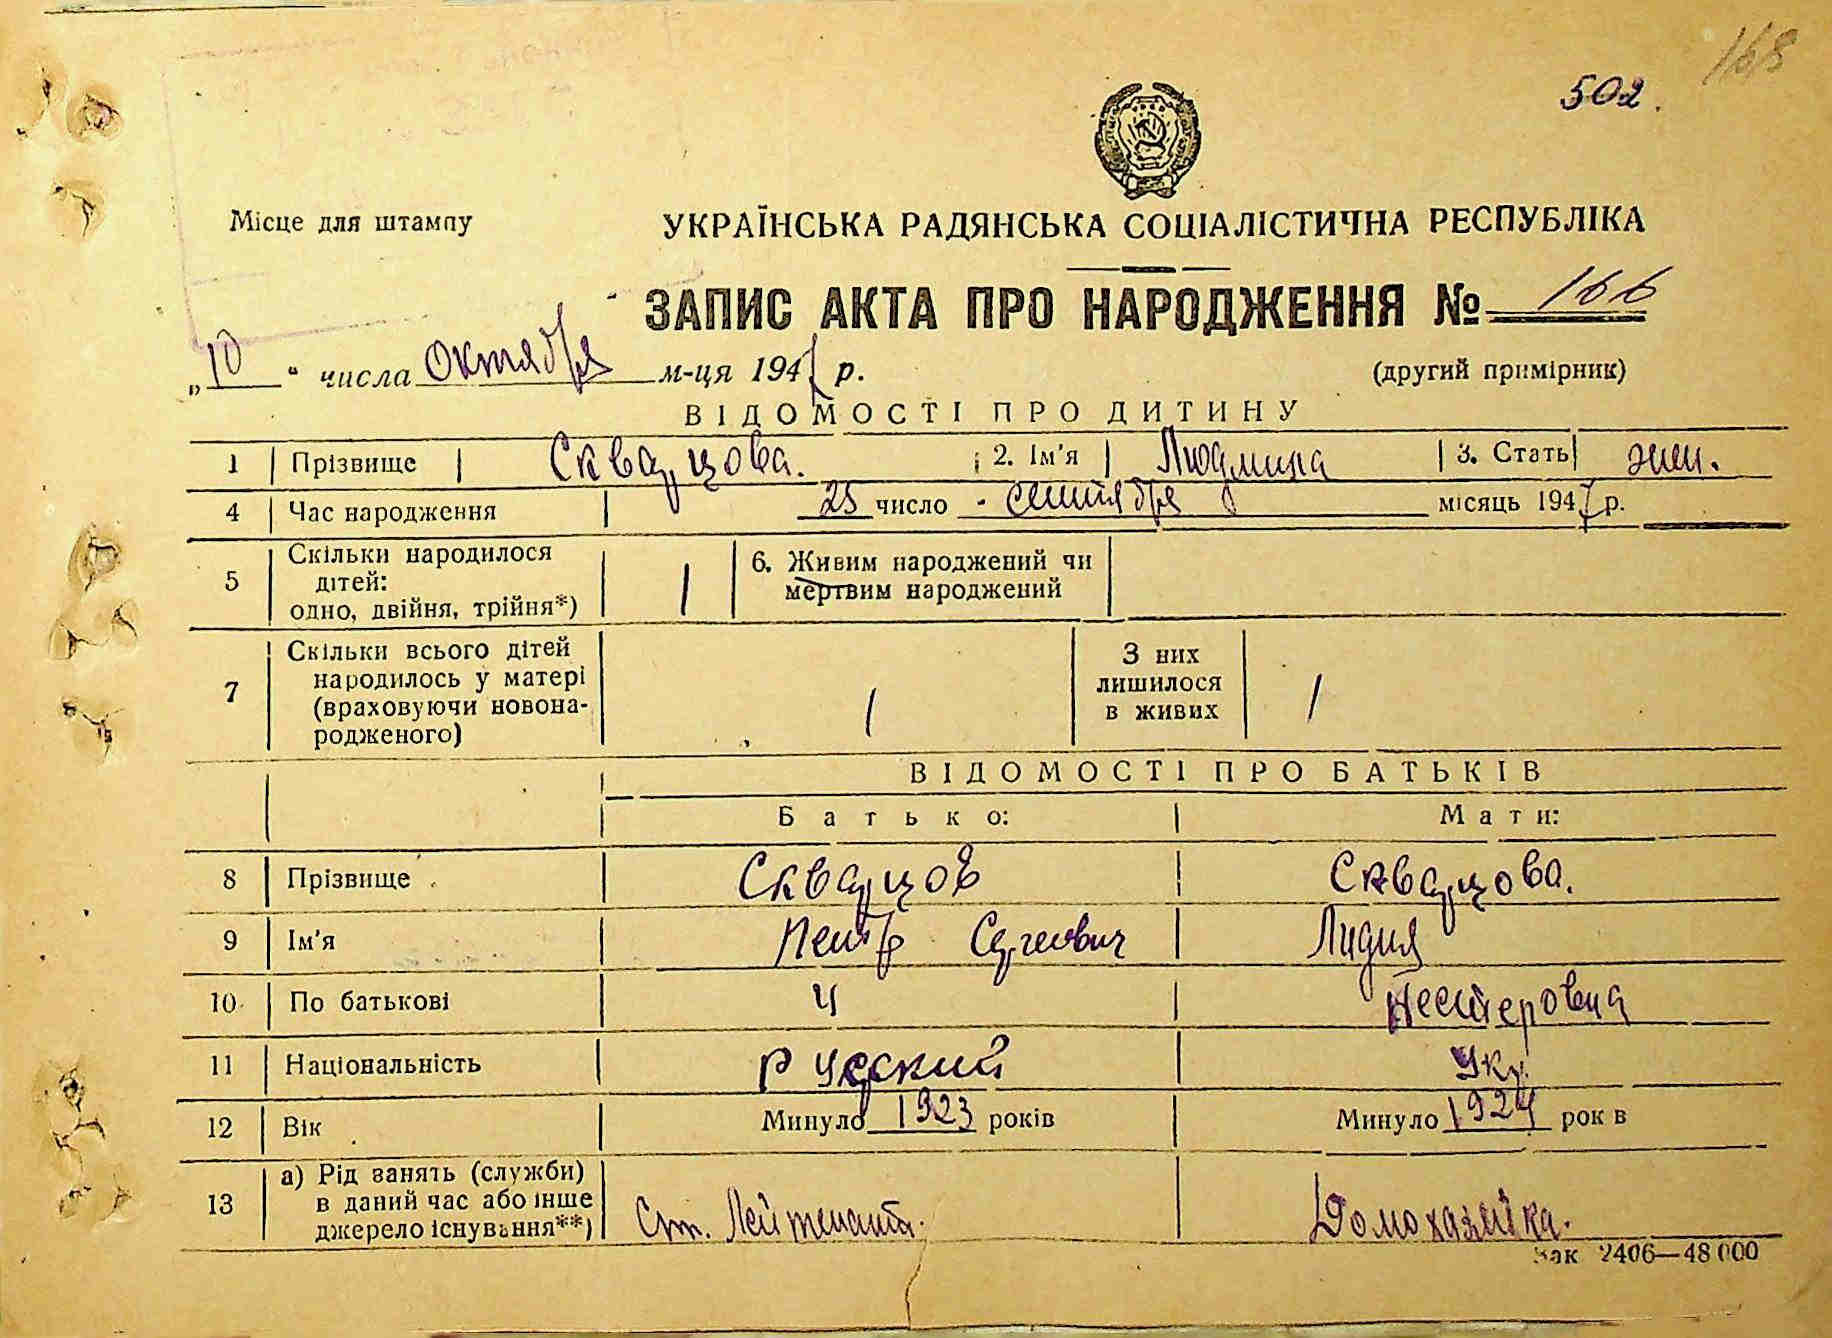 168
502.
Місце для штампу
УКРАЇНСЬКА РАДЯНСЬКА СОЦІАЛІСТИЧНА РЕСПУБЛІКА
ЗАПИС АКТА ПРО НАРОДЖЕННЯ № 166
„10“ числа октября м-ця 1947 р.
(другий примірник)
ВІДОМОСТІ ПРО ДИТИНУ
1 Прізвище Скварцова. 2. Ім'я Людмила 3. Стать жен.
4 Час народження 25 число - сентября місяць 1947 р.
5 Скільки народилося дітей: одно, двійня, трійня*) 1 6. Живим народжений чи мертвим народжений
7 Скільки всього дітей народилось у матері (враховуючи новонародженого) 1 З них лишилося в живих 1
ВІДОМОСТІ ПРО БАТЬКІВ
Батько: Мати:
8 Прізвище Скварцов Скварцова.
9 Ім'я Петр Сергеевич Лидия
10 По батькові Нестеровна
11 Національність русский Укр.
12 Вік Минуло 1923 років Минуло 1924 рок в
13 а) Рід занять (служби) в даний час або інше джерело існування**) Ст. Лейтенант. Домохазяйка.
Зак 2406—48 000